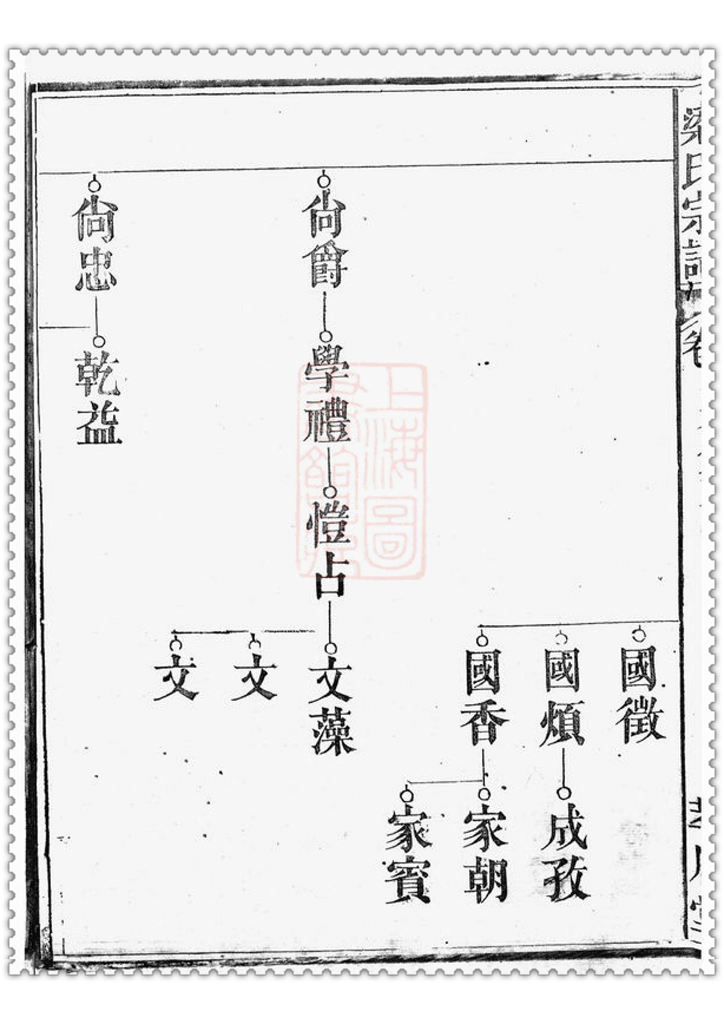 梁氏宗譜
卷
國徵
國煩
成孜
國香
家朝
家賓
尙爵
學禮
愷占
文藻
文
文
尙忠
乾益
上海圖
書館藏